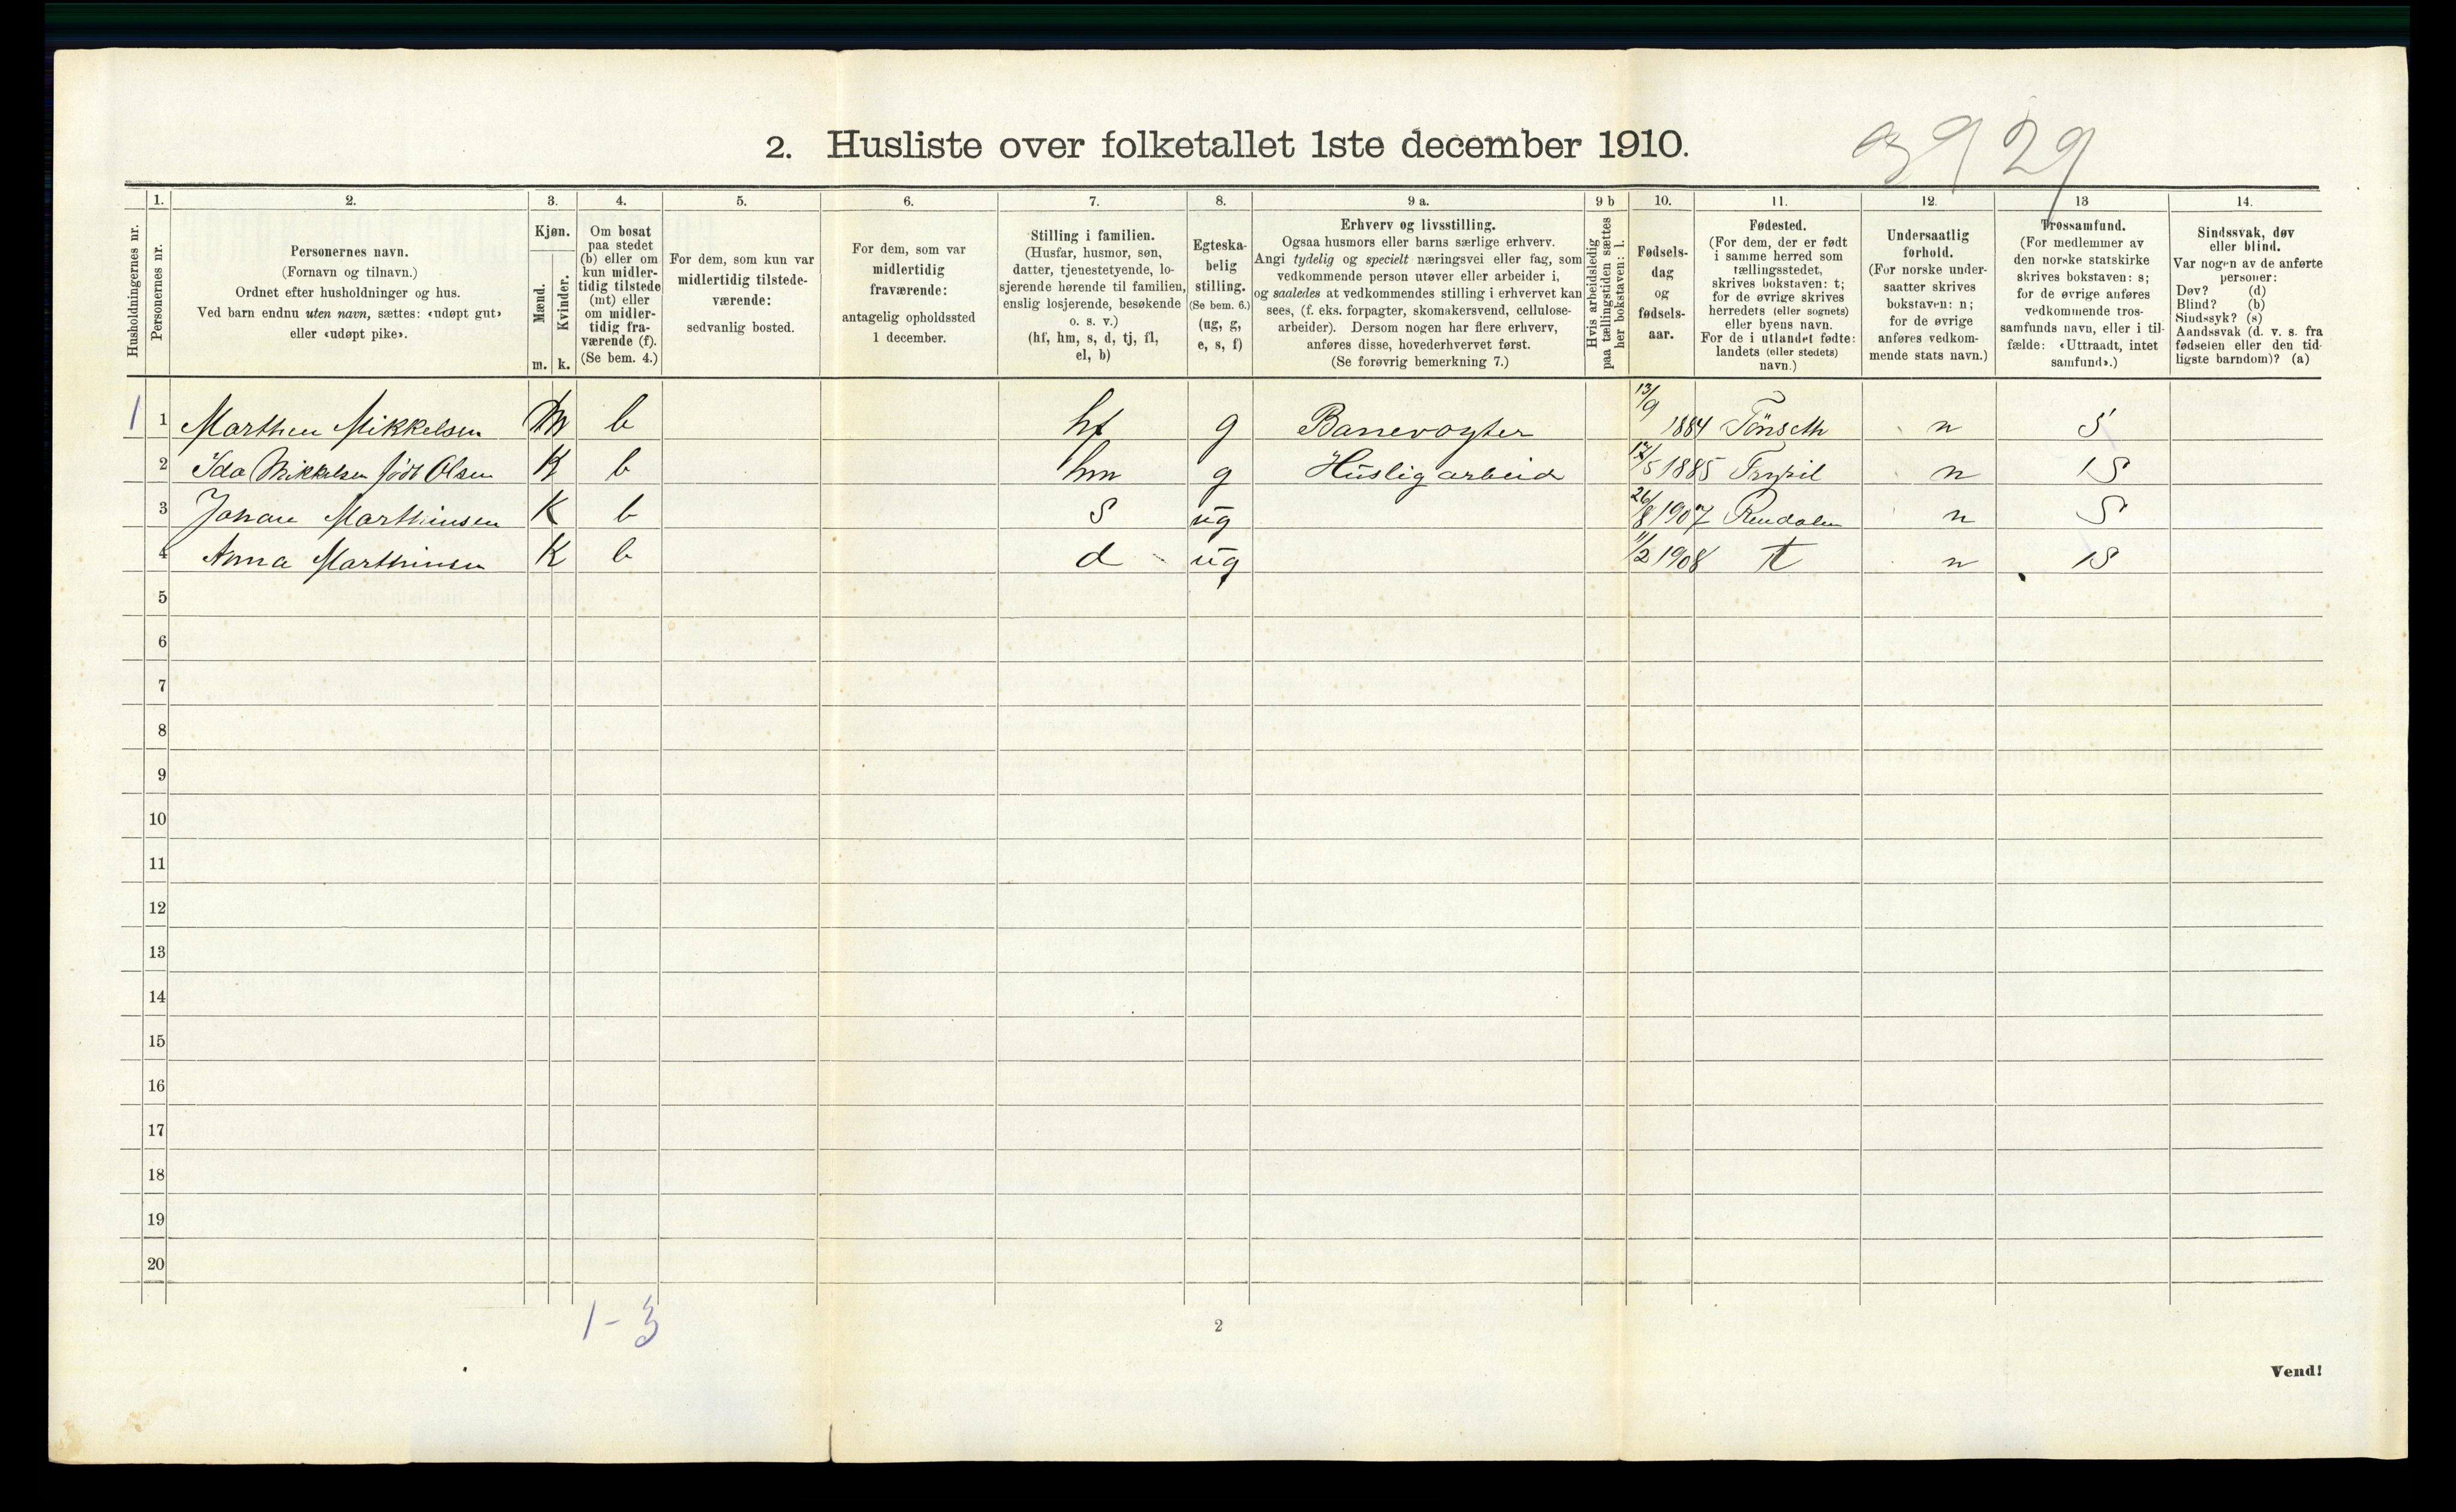 2. Husliste over folketallet 1ste december 1910.
3929
Husholdningernes nr.
1.
Personernes nr.
2.
Personernes navn.
(Fornavn og tilnavn.)
Ordnet efter husholdninger og hus.
Ved barn endnu uten navn, sættes: «udøpt gut»
eller «udøpt pike».
3.
Kjøn.
Mænd.
Kvinder.
m. k.
4.
Om bosat
paa stedet
(b) eller om
kun midler-
tidig tilstede
(mt) eller
om midler-
tidig fra-
værende (f).
(Se bem. 4.)
5.
For dem, som kun var
midlertidig tilstede-
værende:
sedvanlig bosted.
6.
For dem, som var
midlertidig
fraværende:
antagelig opholdssted
1 december.
7.
Stilling i familien.
(Husfar, husmor, søn,
datter, tjenestetyende, lo-
sjerende hørende til familien,
enslig losjerende, besøkende
o. s. v.)
(hf, hm, s, d, tj, fl,
el, b)
8.
Egteska-
belig
stilling.
(Se bem. 6.)
(ug, g,
e, s, f)
9 a.
Erhverv og livsstilling.
Ogsaa husmors eller barns særlige erhverv.
Angi tydelig og specielt næringsvei eller fag, som
vedkommende person utøver eller arbeider i,
og saaledes at vedkommendes stilling i erhvervet kan
sees, (f. eks. forpagter, skomakersvend, cellulose-
arbeider). Dersom nogen har flere erhverv,
anføres disse, hovederhvervet først.
(Se forøvrig bemerkning 7.)
9 b
Hvis arbeidsledig
paa tællingstiden sættes
her bokstaven: l.
10.
Fødsels-
dag
og
fødsels-
aar.
11.
Fødested.
(For dem, der er født
i samme herred som
tællingsstedet,
skrives bokstaven: t;
for de øvrige skrives
herredets (eller sognets)
eller byens navn.
For de i utlandet fødte:
landets (eller stedets)
navn.)
12.
Undersaatlig
forhold.
(For norske under-
saatter skrives
bokstaven: n;
for de øvrige
anføres vedkom-
mende stats navn.)
13
Trossamfund.
(For medlemmer av
den norske statskirke
skrives bokstaven: s;
for de øvrige anføres
vedkommende tros-
samfunds navn, eller i til-
fælde: «Uttraadt, intet
samfund».)
14.
Sindssvak, døv
eller blind.
Var nogen av de anførte
personer:
Døv? (d)
Blind? (b)
Sindssyk? (s)
Aandssvak (d. v. s. fra
fødselen eller den tid-
ligste barndom)? (a)
1 1 Marthin Mikkelsen m b hf g Banevogter 13/9 1884 Tönseth n S
2 Ida Mikkelsen födt Olsen K b hm g Huslig arbeid 17/5 1885 Trysil n S
3 Johan Marthinsen K b S ug 26/8 1907 Rendalen n S
4 Anna Marthinsen K b d ug 11/2 1908 t n S
5
6
7
8
9
10
11
12
13
14
15
16
17
18
19
20
1-3
2
Vend!